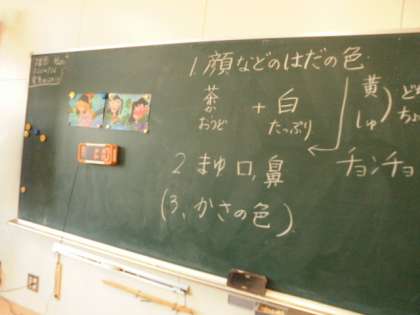 1.顔などのはだの色
茶 + 白
おうど たっぷり
黄
しゅ
ちょ
2 まゆ 口、鼻
チョンチョ
(3、かさの色)